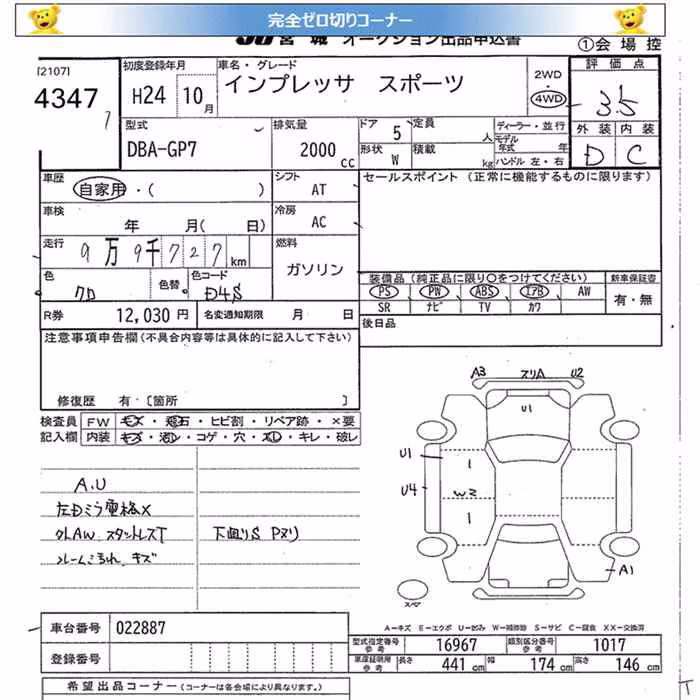 完全ゼロ切りコーナー
JU宮城 オークション出品申込書
①会場控
[2107]
4347
初度登録年月
H24 10月
車名・グレード
インプレッサ スポーツ
2WD
4WD
評価点
3.5
外装 内装
D C
型式
DBA-GP7
排気量
2000 cc
ドア 5
定員 人
形状 W
積載 kg
ディーラー・並行
モデル年式 年
ハンドル 左・右
車歴
自家用・( )
シフト AT
セールスポイント (正常に機能するものに限ります)
車検
年 月( 日)
冷房 AC
走行
9万9千727km
燃料
ガソリン
色
色替
色コード
D4S
装備品(純正品に限り○をつけてください)
新車保証書
PS PW ABS エアB AW
SR ナビ TV カワ
有・無
R券 12,030円
名変通知期限 月 日
後日品
注意事項申告欄(不具合内容等は具体的に記入して下さい)
修復歴 有・〔箇所 〕
検査員記入欄
FW キズ・飛石・ヒビ割・リペア跡・×要
内装 キズ・汚レ・コゲ・穴・スレ・キレ・破レ
A3 スリA U2
U1
U1
U4
A1
スペア
A.U
左Dミラ電格X
外AW スタットレスT
フレームこすれ、キズ
下廻りS Pヌリ
車台番号 022887
登録番号
A-キズ E-エクボ U-凹み W-補修跡 S-サビ C-腐食 XX-交換済
型式指定番号 参考 16967
類別区分番号 参考 1017
車庫証明用 参考 長さ 441cm 幅 174cm 高さ 146cm
希望出品コーナー (コーナーは各会場により異なります。)